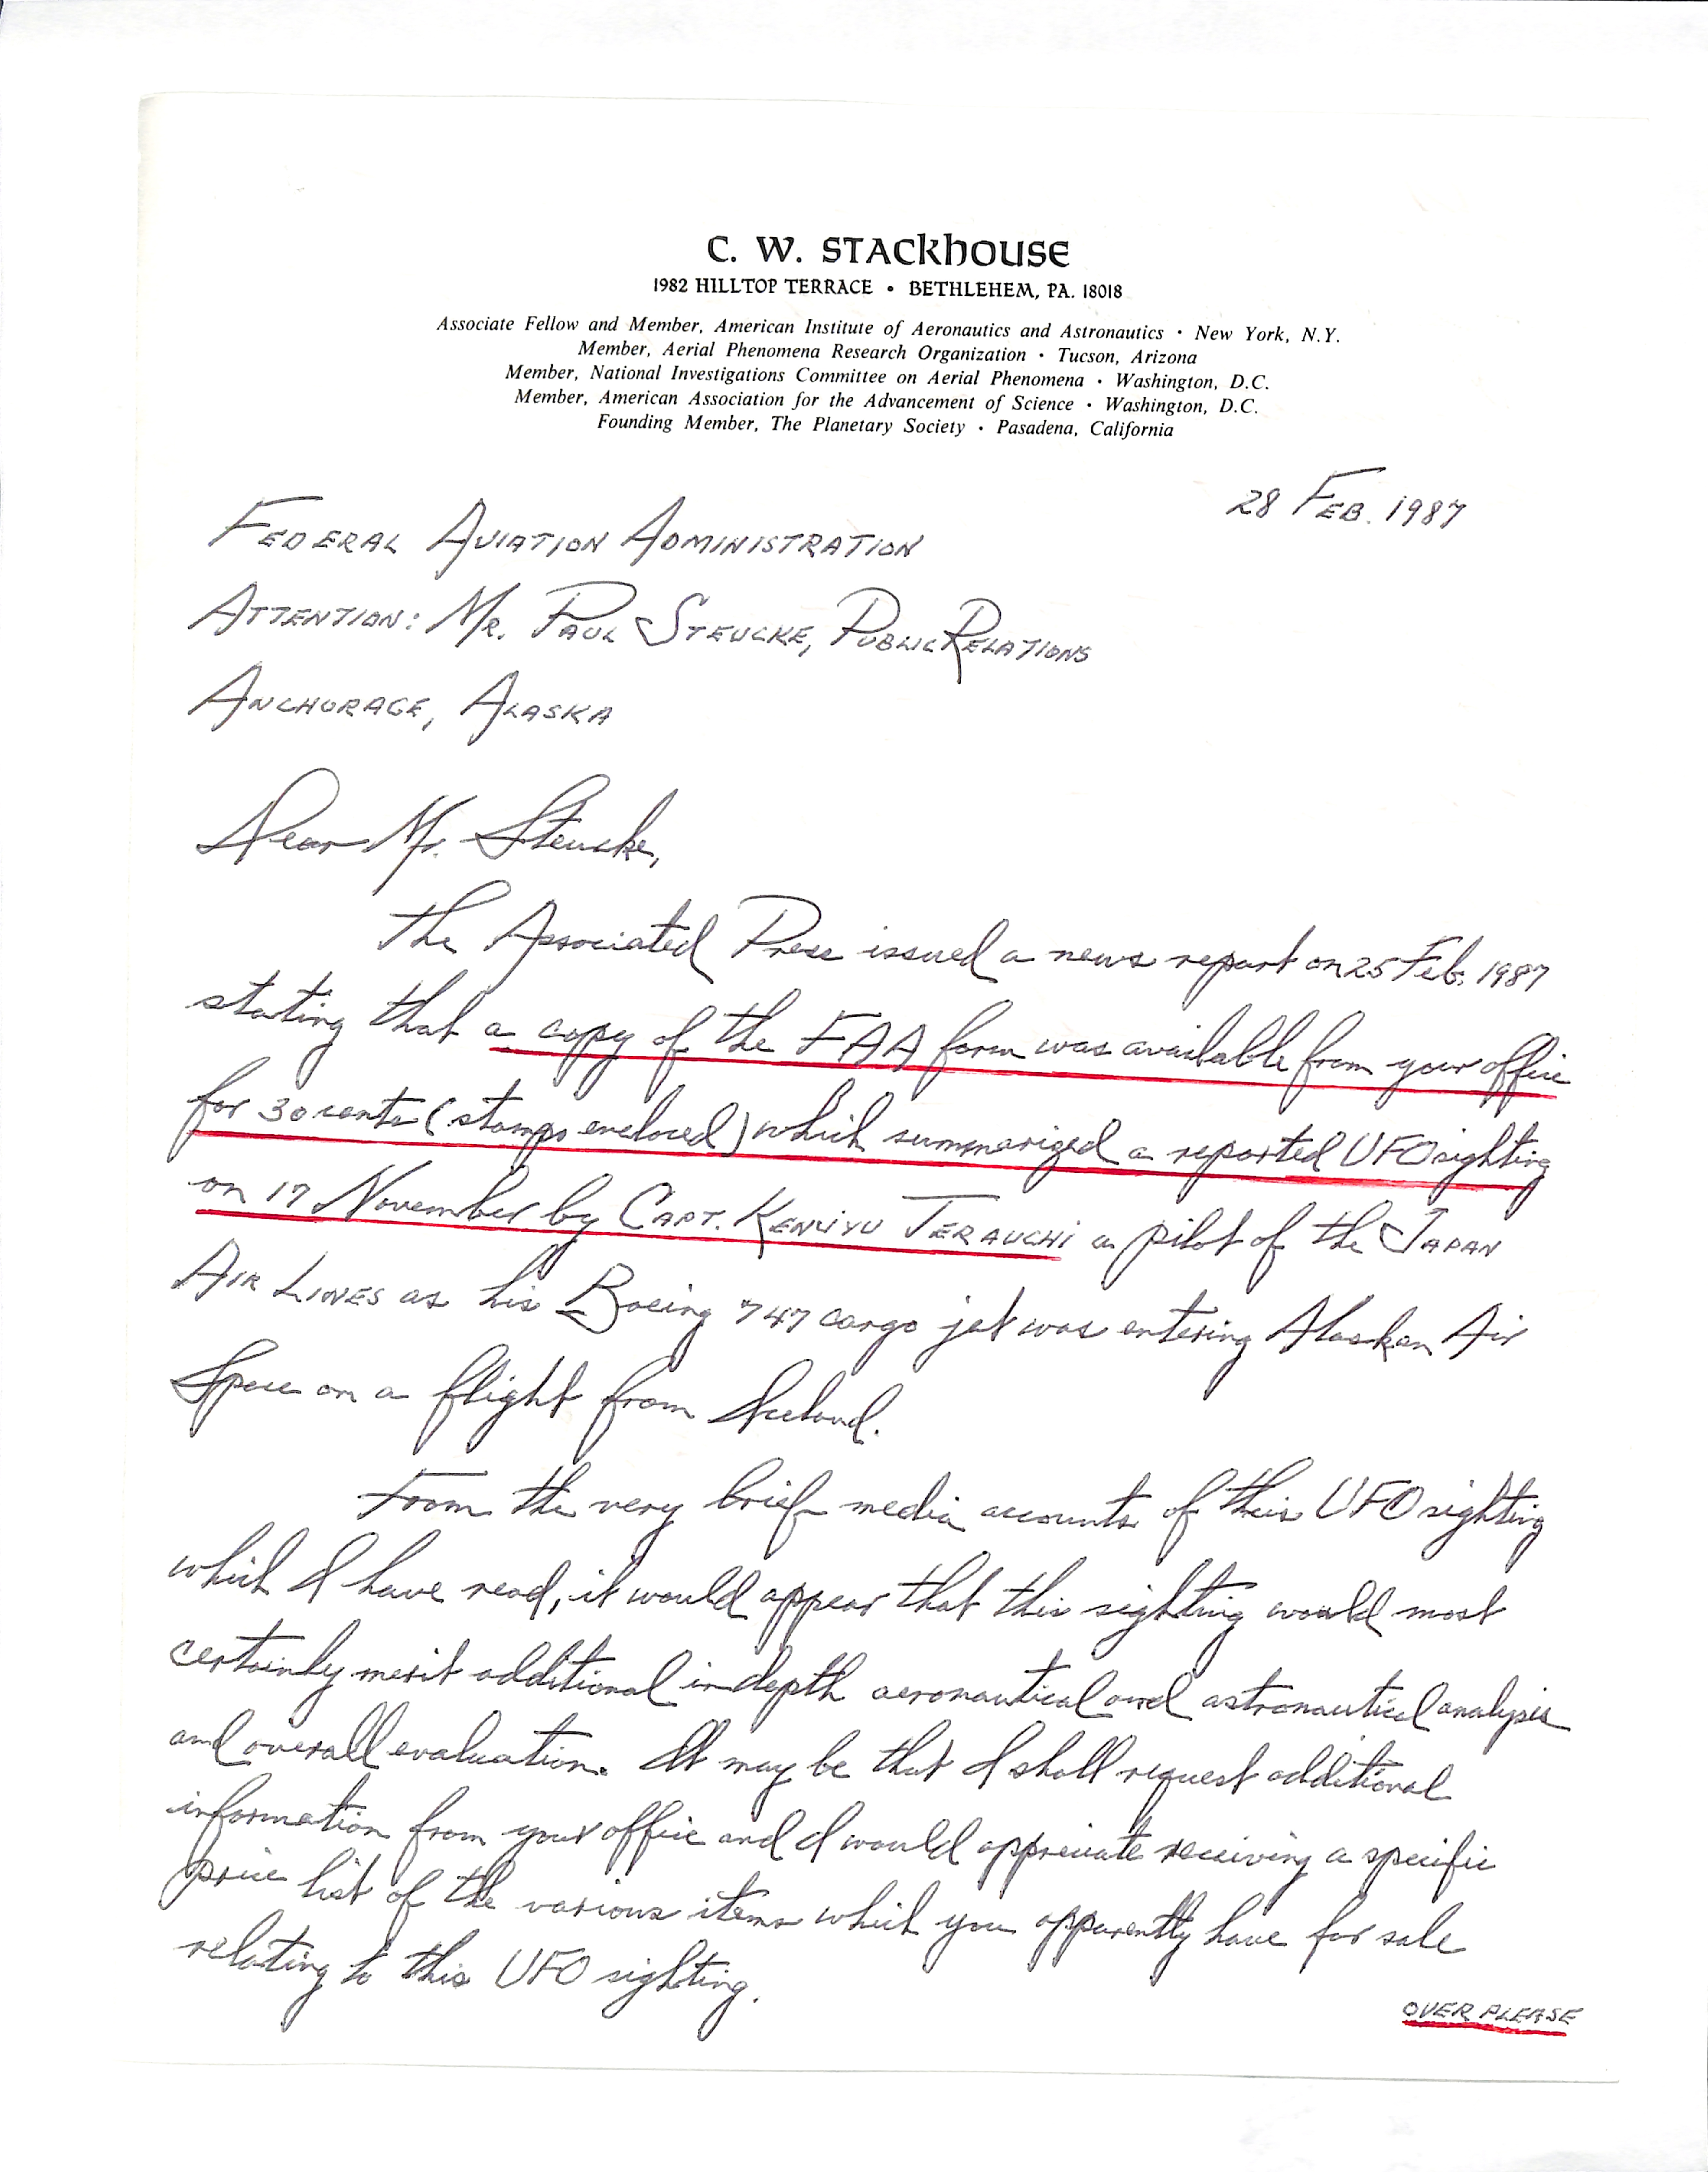 C. W. STACKHOUSE
1982 HILLTOP TERRACE • BETHLEHEM, PA. 18018
Associate Fellow and Member, American Institute of Aeronautics and Astronautics • New York, N.Y.
Member, Aerial Phenomena Research Organization • Tucson, Arizona
Member, National Investigations Committee on Aerial Phenomena • Washington, D.C.
Member, American Association for the Advancement of Science • Washington, D.C.
Founding Member, The Planetary Society • Pasadena, California
28 FEB. 1987
FEDERAL AVIATION ADMINISTRATION
ATTENTION: MR. PAUL STEUCKE, PUBLIC RELATIONS
ANCHORAGE, ALASKA
Dear Mr. Steucke,
The Associated Press issued a news report on 25 Feb. 1987
stating that a copy of the FAA form was available from your office
for 30 cents (stamps enclosed) which summarized a reported UFO sighting
on 17 November by CAPT. KENJYU TERAUCHI a pilot of the JAPAN
AIR LINES as his Boeing 747 cargo jet was entering Alaskan Air
Space on a flight from Iceland.
From the very brief media accounts of this UFO sighting
which I have read, it would appear that this sighting would most
certainly merit additional indepth aeronautical and astronautical analysis
and overall evaluation. It may be that I shall request additional
information from your office and I would appreciate receiving a specific
price list of the various items which you apparently have for sale
relating to this UFO sighting.
OVER PLEASE